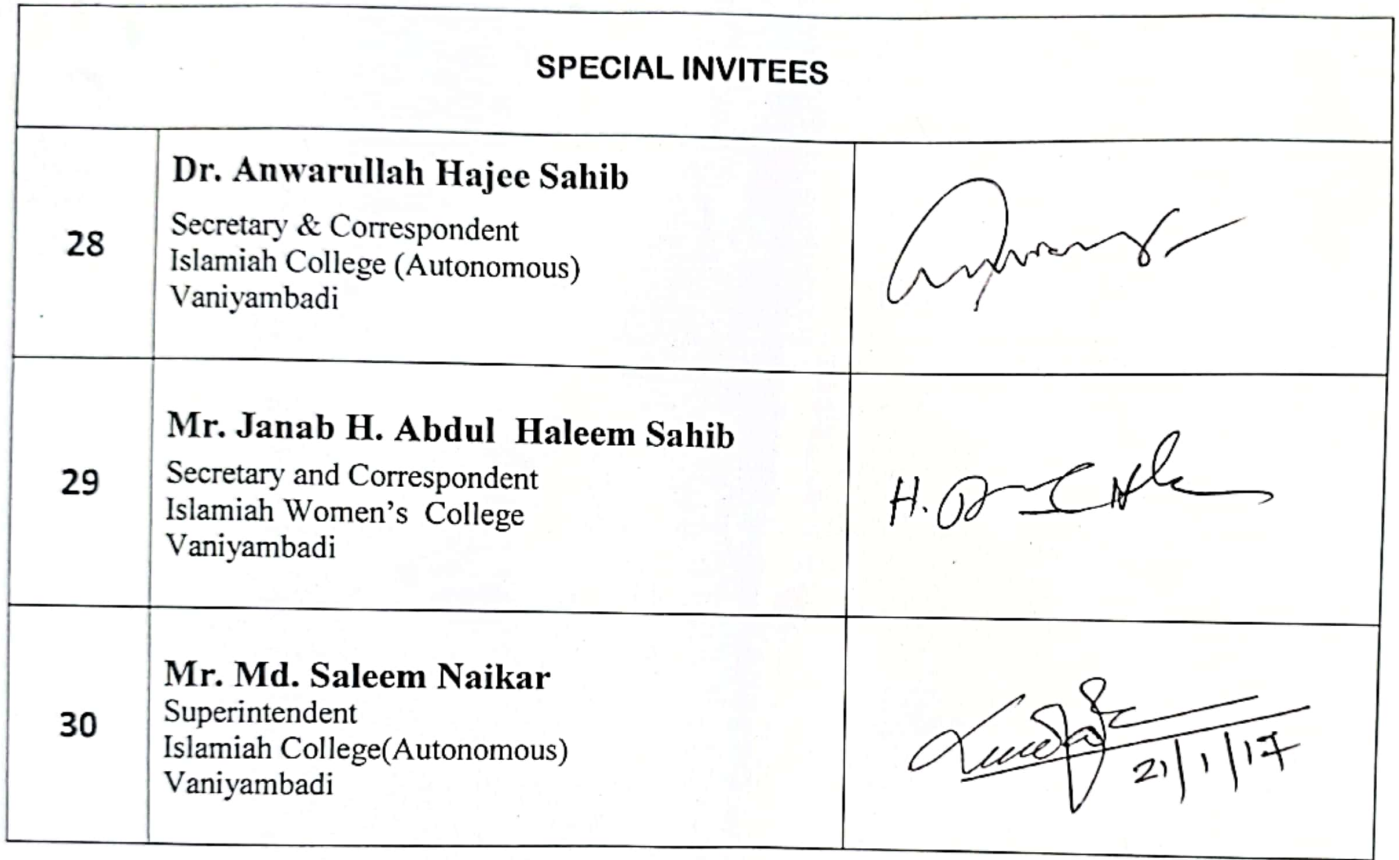 SPECIAL INVITEES
28
Dr. Anwarullah Hajee Sahib
Secretary & Correspondent
Islamiah College (Autonomous)
Vaniyambadi
29
Mr. Janab H. Abdul Haleem Sahib
Secretary and Correspondent
Islamiah Women's College
Vaniyambadi
H.
30
Mr. Md. Saleem Naikar
Superintendent
Islamiah College(Autonomous)
Vaniyambadi
21/1/17